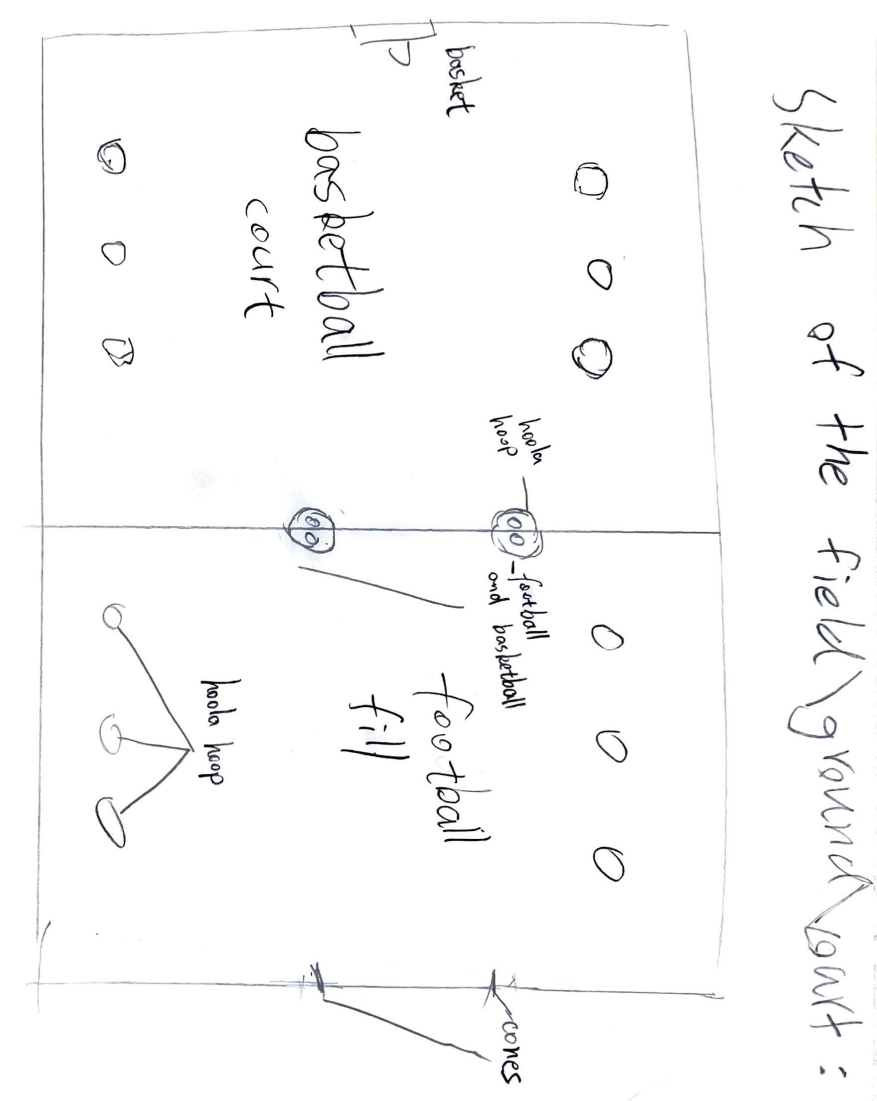 Sketch of the field\ground\court :
basket
basketball
court
hoola
hoop
-football
and basketball
football
fill
hoola hoop
cones